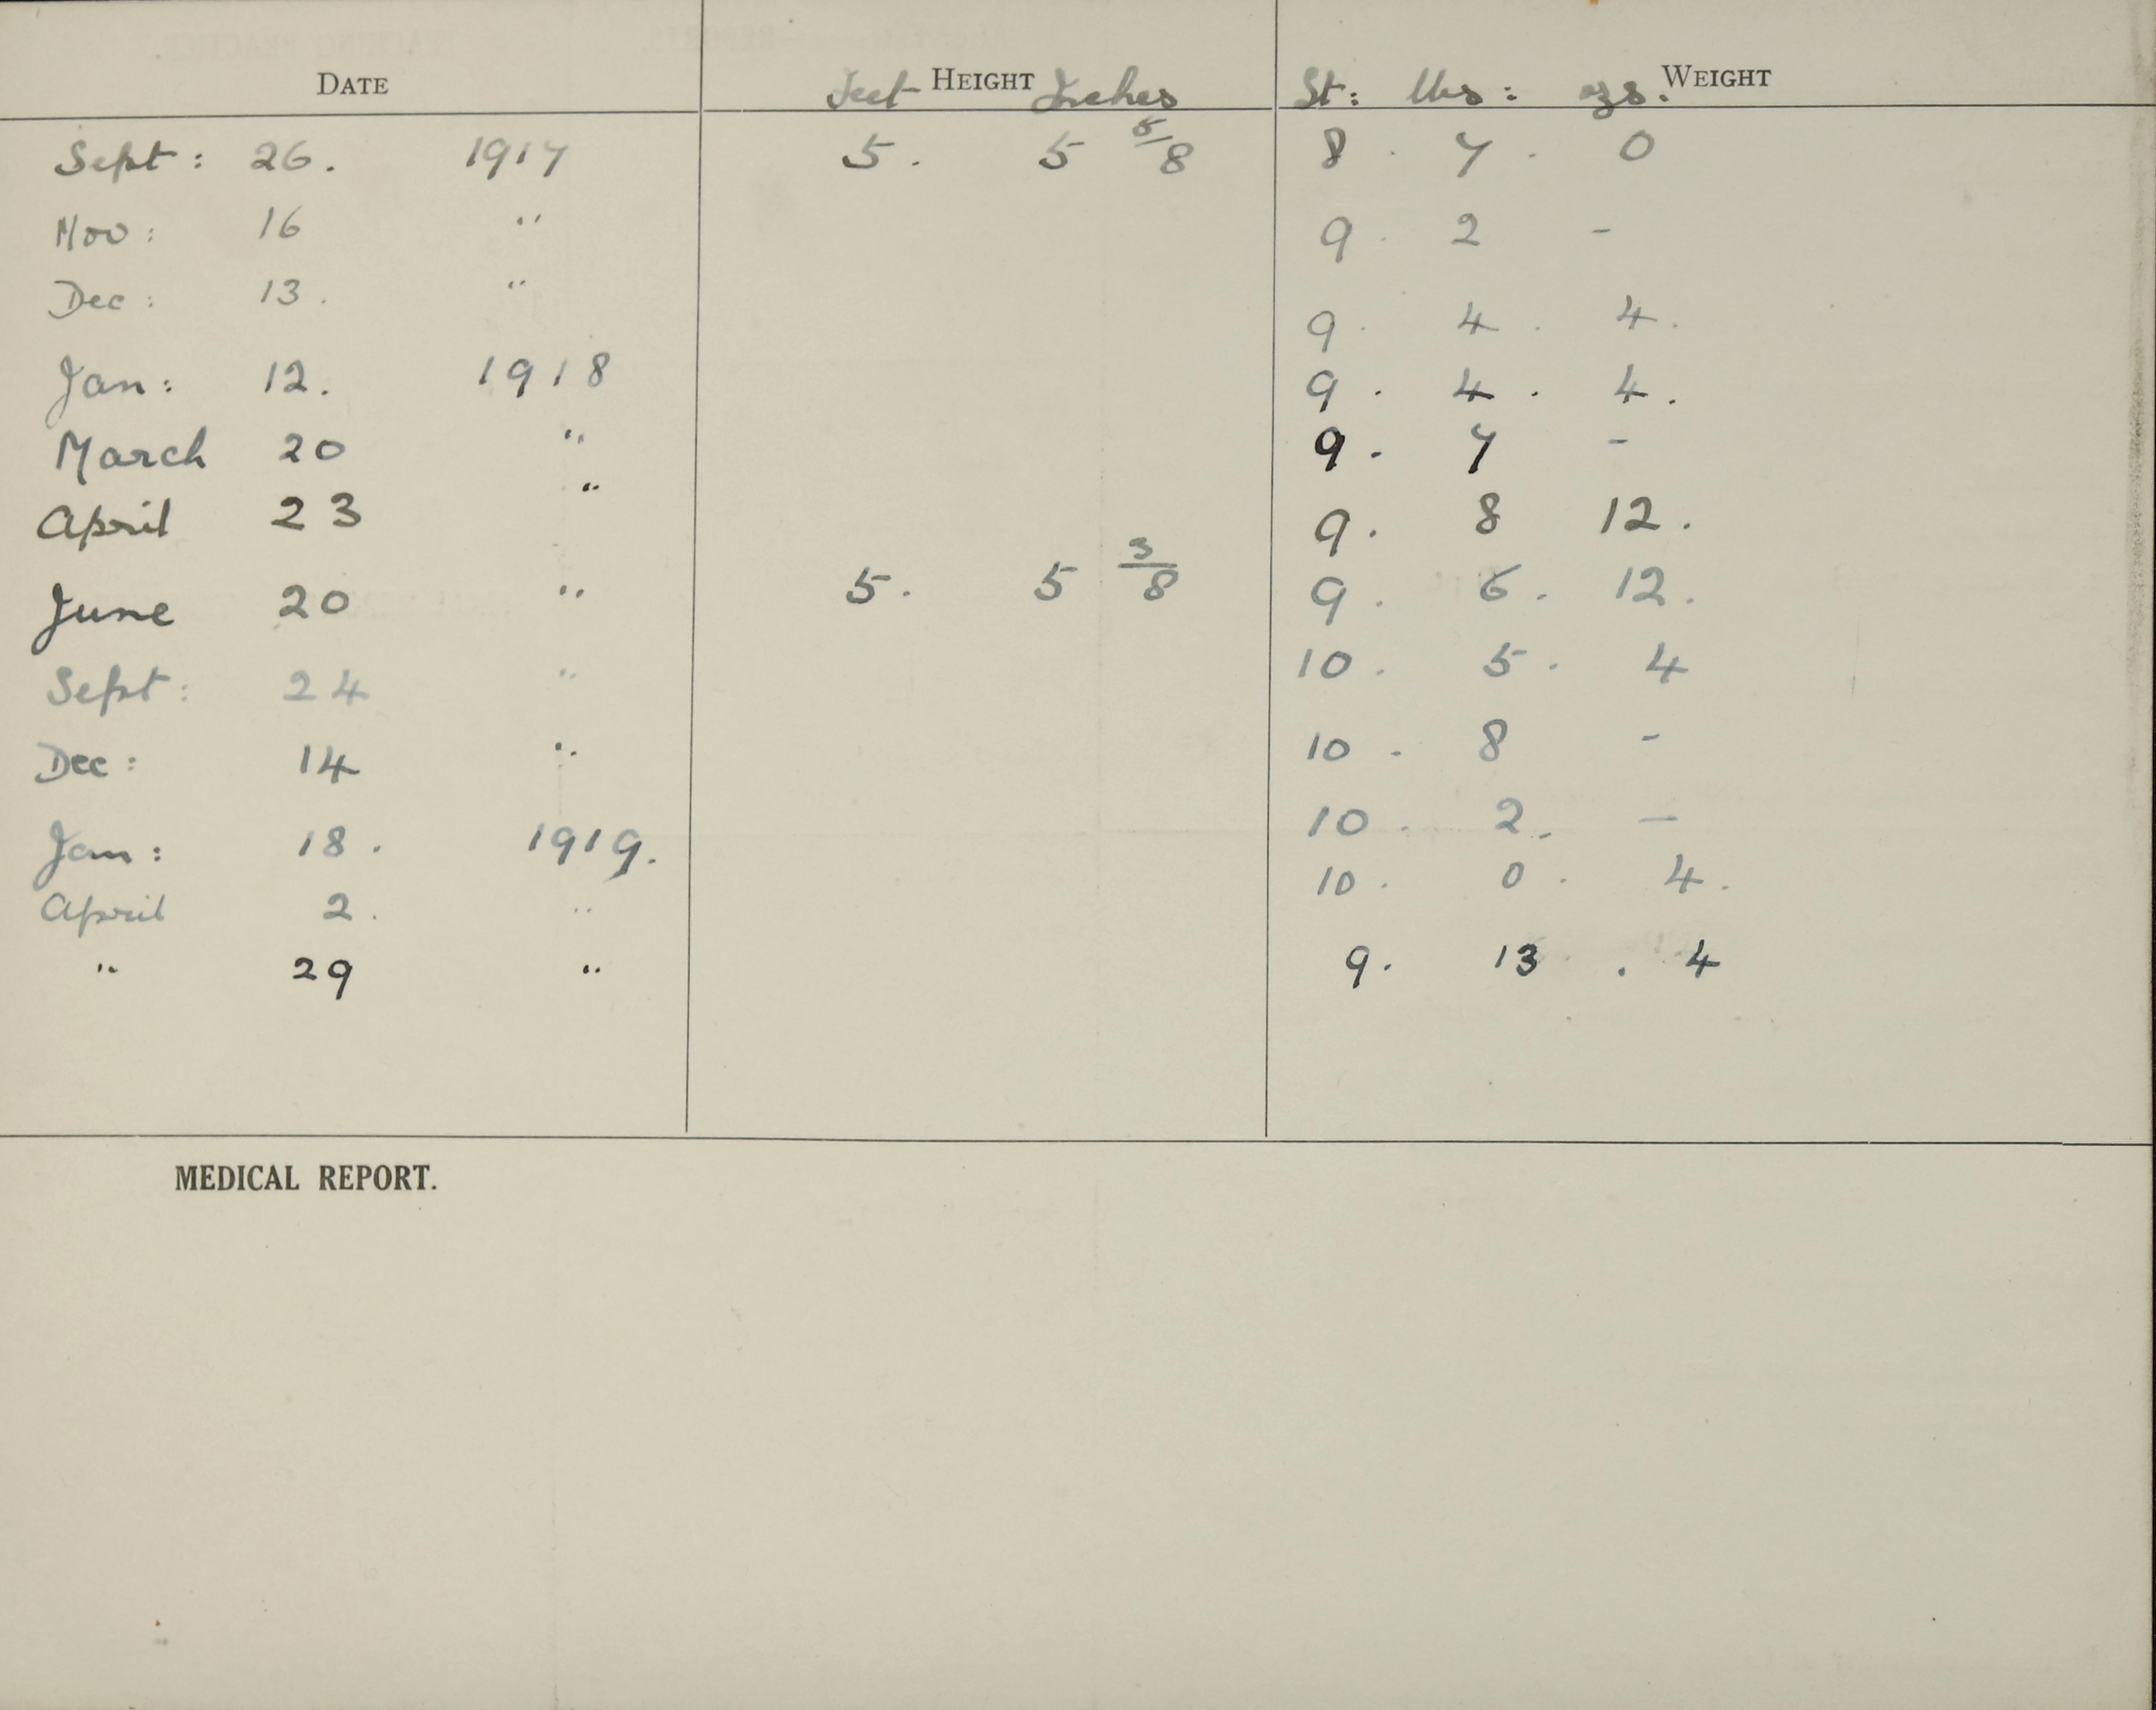 DATE Feet HEIGHT Inches St: lbs: ozs. WEIGHT
Sept: 26. 1917 5. 5 5/8 8. 7. 0
Nov: 16 " 9. 2 -
Dec: 13. " 9. 4. 4.
Jan: 12. 1918 9. 4. 4.
March 20 " 9. 7 -
April 23 " 9. 8 12.
June 20 " 5. 5 3/8 9. 6. 12.
Sept: 24 " 10. 5. 4
Dec: 14 " 10. 8 -
Jan: 18. 1919. 10. 2. -
April 2. " 10. 0. 4.
" 29 " 9. 13. 4
MEDICAL REPORT.